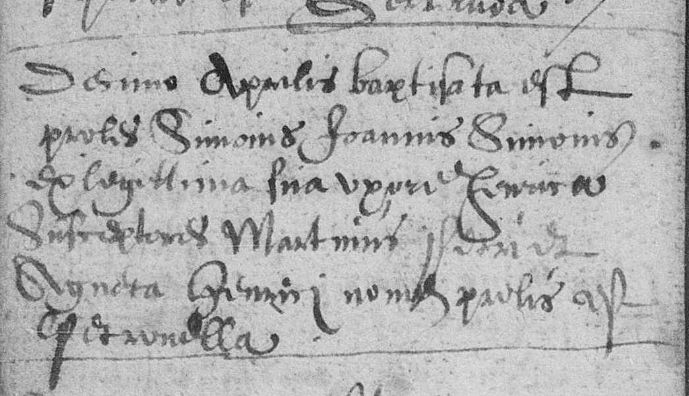 Gertruda
Decimo Aprilis baptisata est
proles Simonis Joannis Simonis.
ex legittima sua uxore Henrica
Susceptores Martinus et
Agneta Henrici nomen prolis est
Petronella